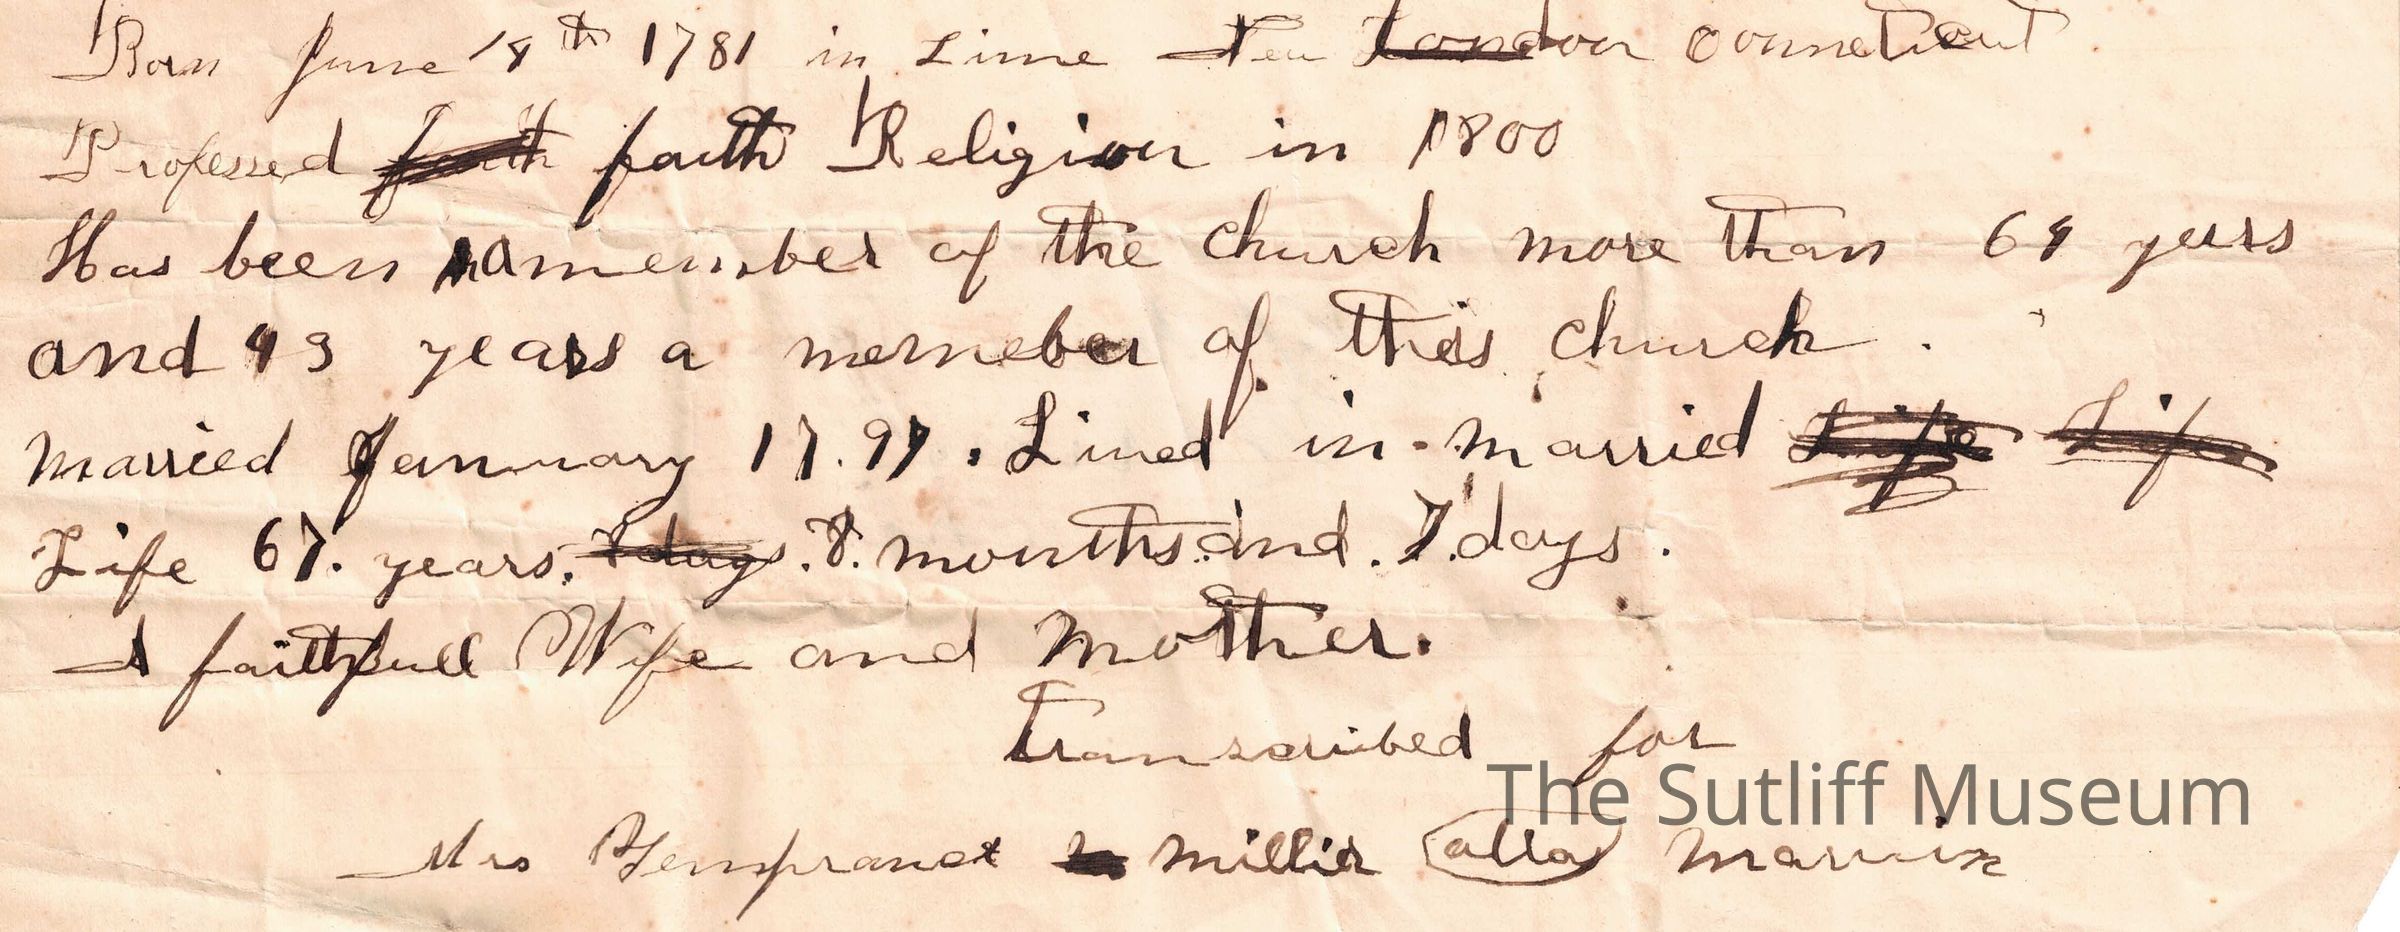 Born June 18th 1781 in Lime New London Conneticut
Professed faith faith Religion in 1800
Has been a member of the church more than 64 yers
and 43 years a memeber of this church.
married January 17.97. Lived in married Life Life
Life 67. years. 7 days. 8. months. and. 7. days.
A faithfull Wife and Mother.
Transcribed for
The Sutliff Museum
Mrs Millier Marvin